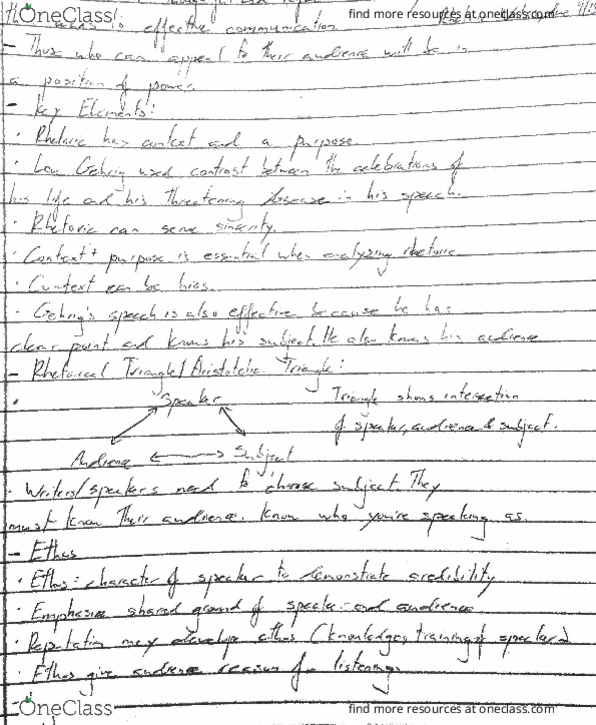 OneClass
find more resources at oneclass.com
to effective communication
- Those who can appeal to their audience will be in
a position of power.
- Key Elements:
· Rhetoric has context and a purpose.
· Lou Gehrig used contrast between the celebrations of
his life and his threatening disease in his speech.
· Rhetoric can serve sincerity.
· Context + purpose is essential when analyzing rhetoric
· Context can be bias.
· Gehrig's speech is also effective because he has
clear point and knows his subject. He also knows his audience
- Rhetorical Triangle/Aristotelic Triangle:
· Speaker
Triangle shows intersection
of speaker, audience & subject.
Audience Subject
· Writers/speakers need to choose subject. They
must know their audience. Know who you're speaking as.
- Ethos
· Ethos: character of speaker to demonstrate credibility
· Emphasize shared ground of speaker and audience
· Reputation may develop ethos (knowledge, training of speaker)
· Ethos give audience reason for listening.
OneClass
find more resources at oneclass.com